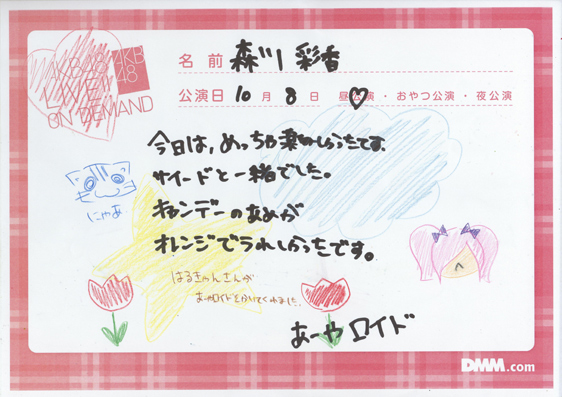 AKB48
LIVE!!
ON DEMAND
AKB
48
名前 森川 彩香
公演日 10月8日 昼公演・おやつ公演・夜公演
今日は、めっちゃ楽しかったです。
サイードと一緒でした。
キャンデーのあめが
オレンジでうれしかったです。
にゃあ
はるきゃんさんが
あーやロイドをかいてくれました。
あーやロイド
DMM.com